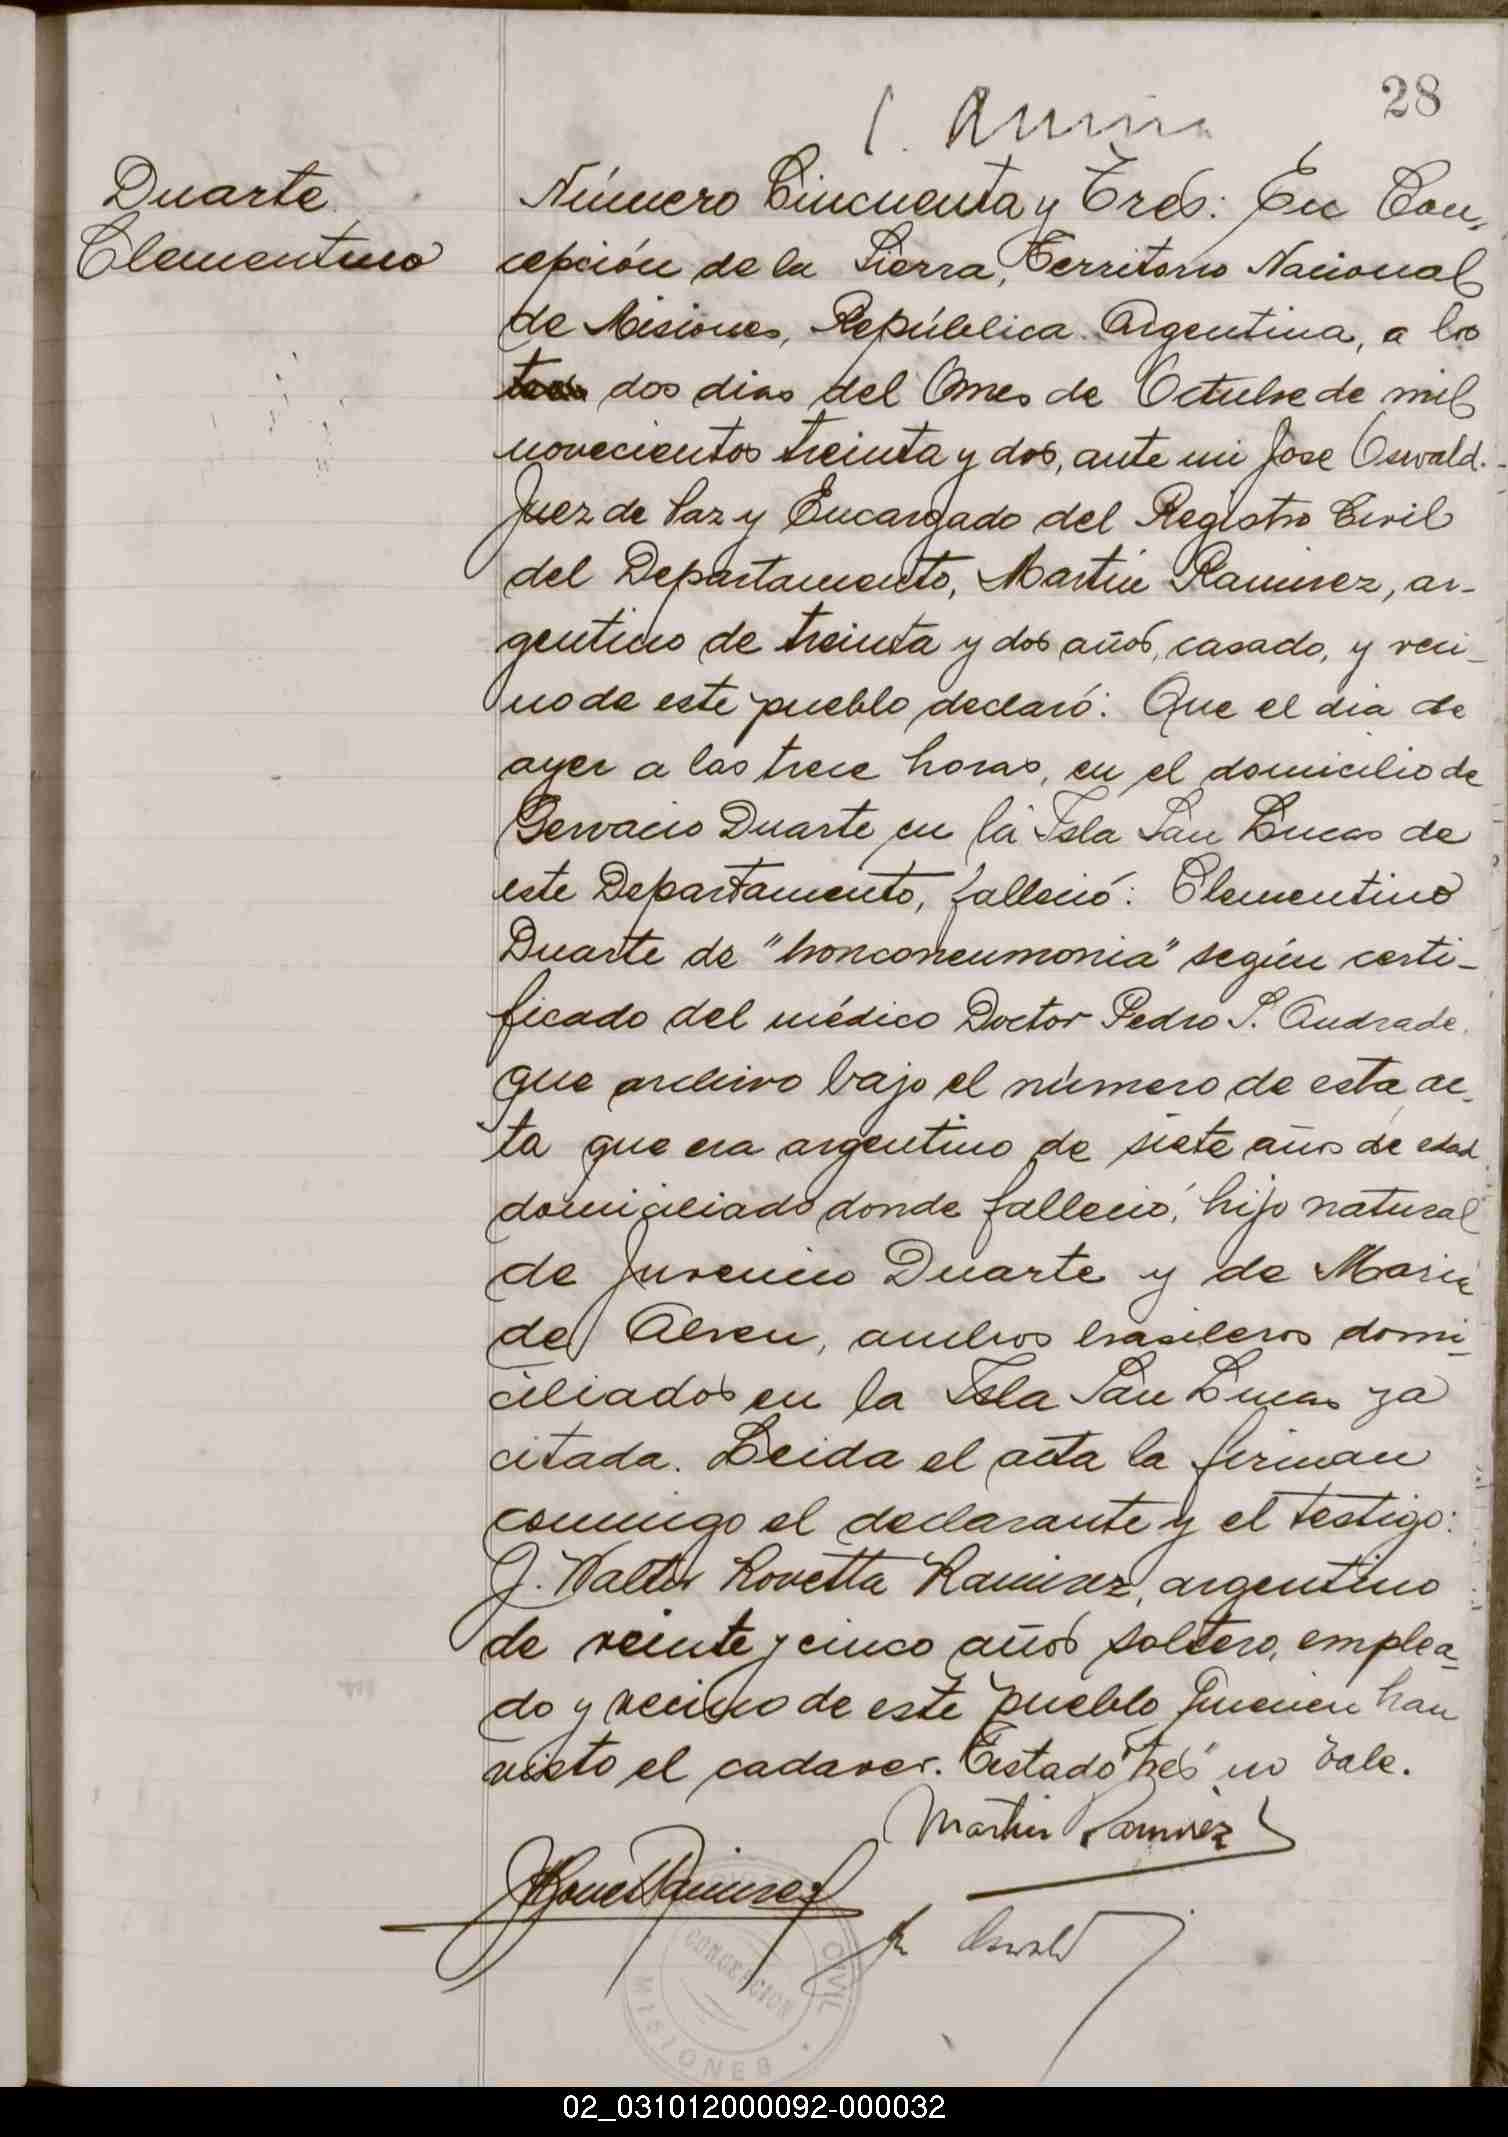 28
Duarte
Clementino
Número Cincuenta y Tres: En Con-
cepción de la Sierra, Territorio Nacional
de Misiones, República Argentina, a los
tres dos dias del mes de Octubre de mil
novecientos treinta y dos, ante mi Jose Oswald.
Juez de Paz y Encargado del Registro Civil
del Departamento, Martin Ramirez, ar-
gentino de treinta y dos años, casado, y veci-
no de este pueblo declaró: Que el dia de
ayer a las trece horas, en el domicilio de
Gervacio Duarte en la Isla San Lucas de
este Departamento, falleció: Clementino
Duarte de "bronconeumonia" según certi-
ficado del médico Doctor Pedro S. Andrade.
que archivo bajo el número de esta ac-
ta que era argentino de siete años de edad
domiciliado donde falleció, hijo natural
de Juvencio Duarte y de Maria
de Abreu, ambos brasileros domi-
ciliados en la Isla San Lucas ya
citada. Leida el acta la firman
conmigo el declarante y el testigo:
J. Walter Rovetta Ramirez, argentino
de veinte y cinco años soltero, emplea-
do y vecino de este pueblo Quienes han
visto el cadaver. Testado "tres" no vale.
Martin Ramirez
Oswald
CONCEPCION
CIVIL
MISIONES
02_031012000092-000032